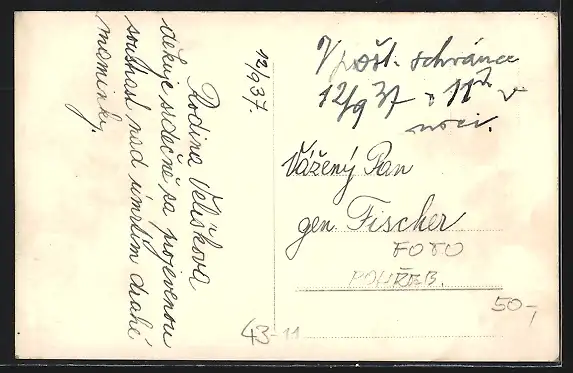 12/9 37.
Rodina Veliškova
děkuje srdečně za projevenou
soustrast nad úmrtím drahé
maminky.
V pošt. schránce
12/9 37 v 11 h v
noci.
Vážený Pan
gen. Fischer
FOTO
POHŘEB.
50,-
43-11